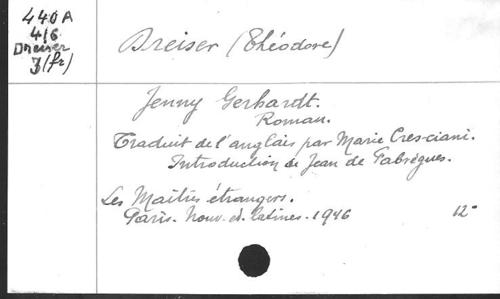 440 A
416
Dreiser
J (fr)
Dreiser (Théodore)
Jenny Gerhardt.
Roman.
Traduit de l'anglais par Marie Cresciani.
Introduction de Jean de Fabrègues.
Les Maîtres étrangers.
Paris. Nouv. éd. latines. 1946 12°